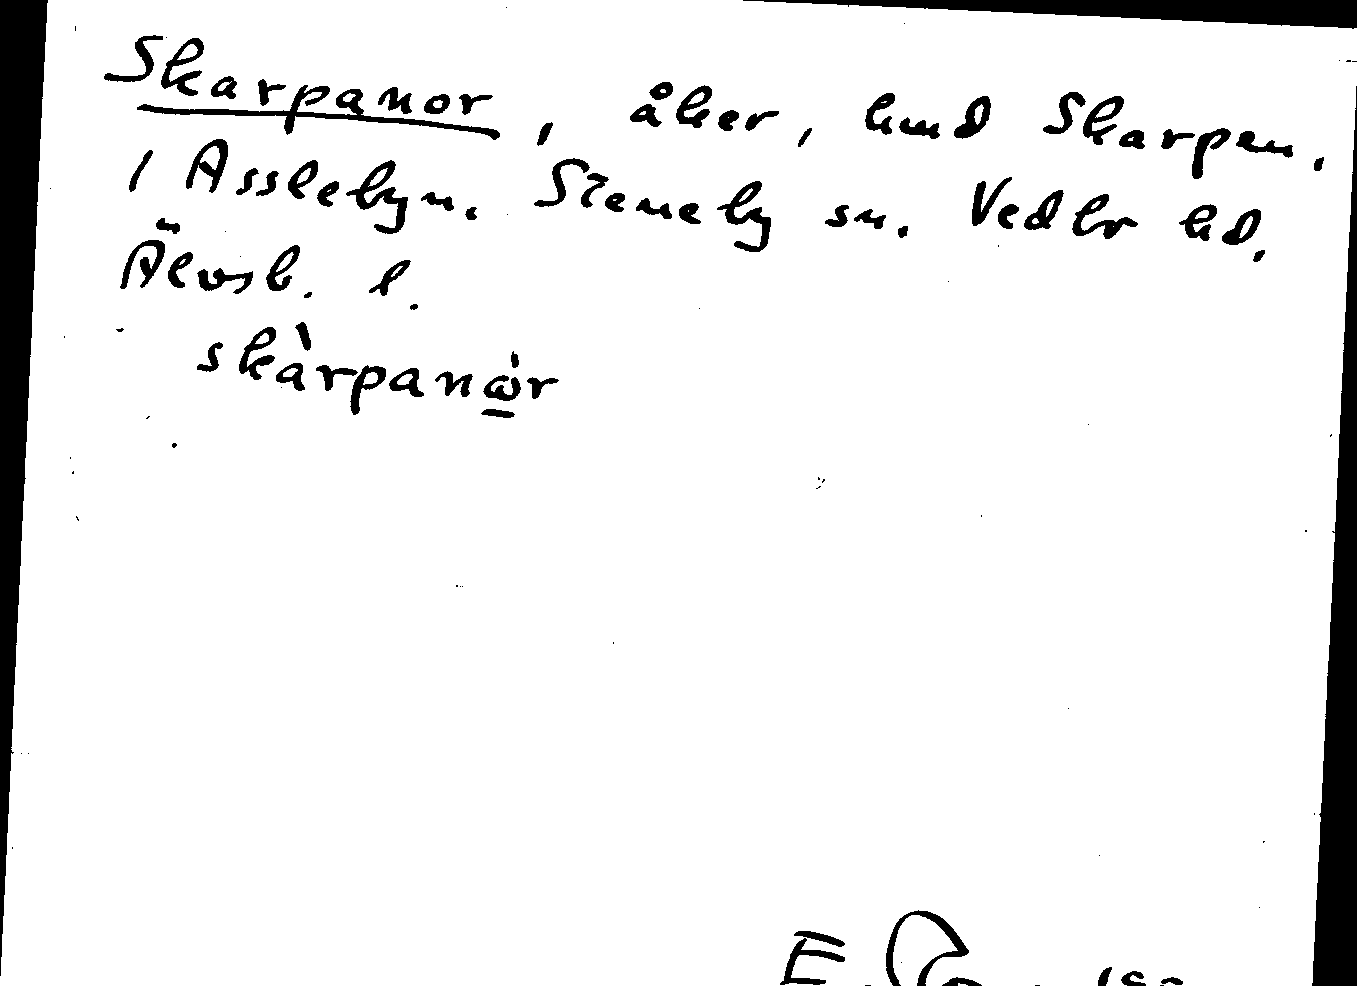 Skarpanor, åker, hmd Skarpen.
1 Asslebyn. Steneby sn. Vedbo hd.
Älvsb. l.
skàrpanὼ̲r
E.